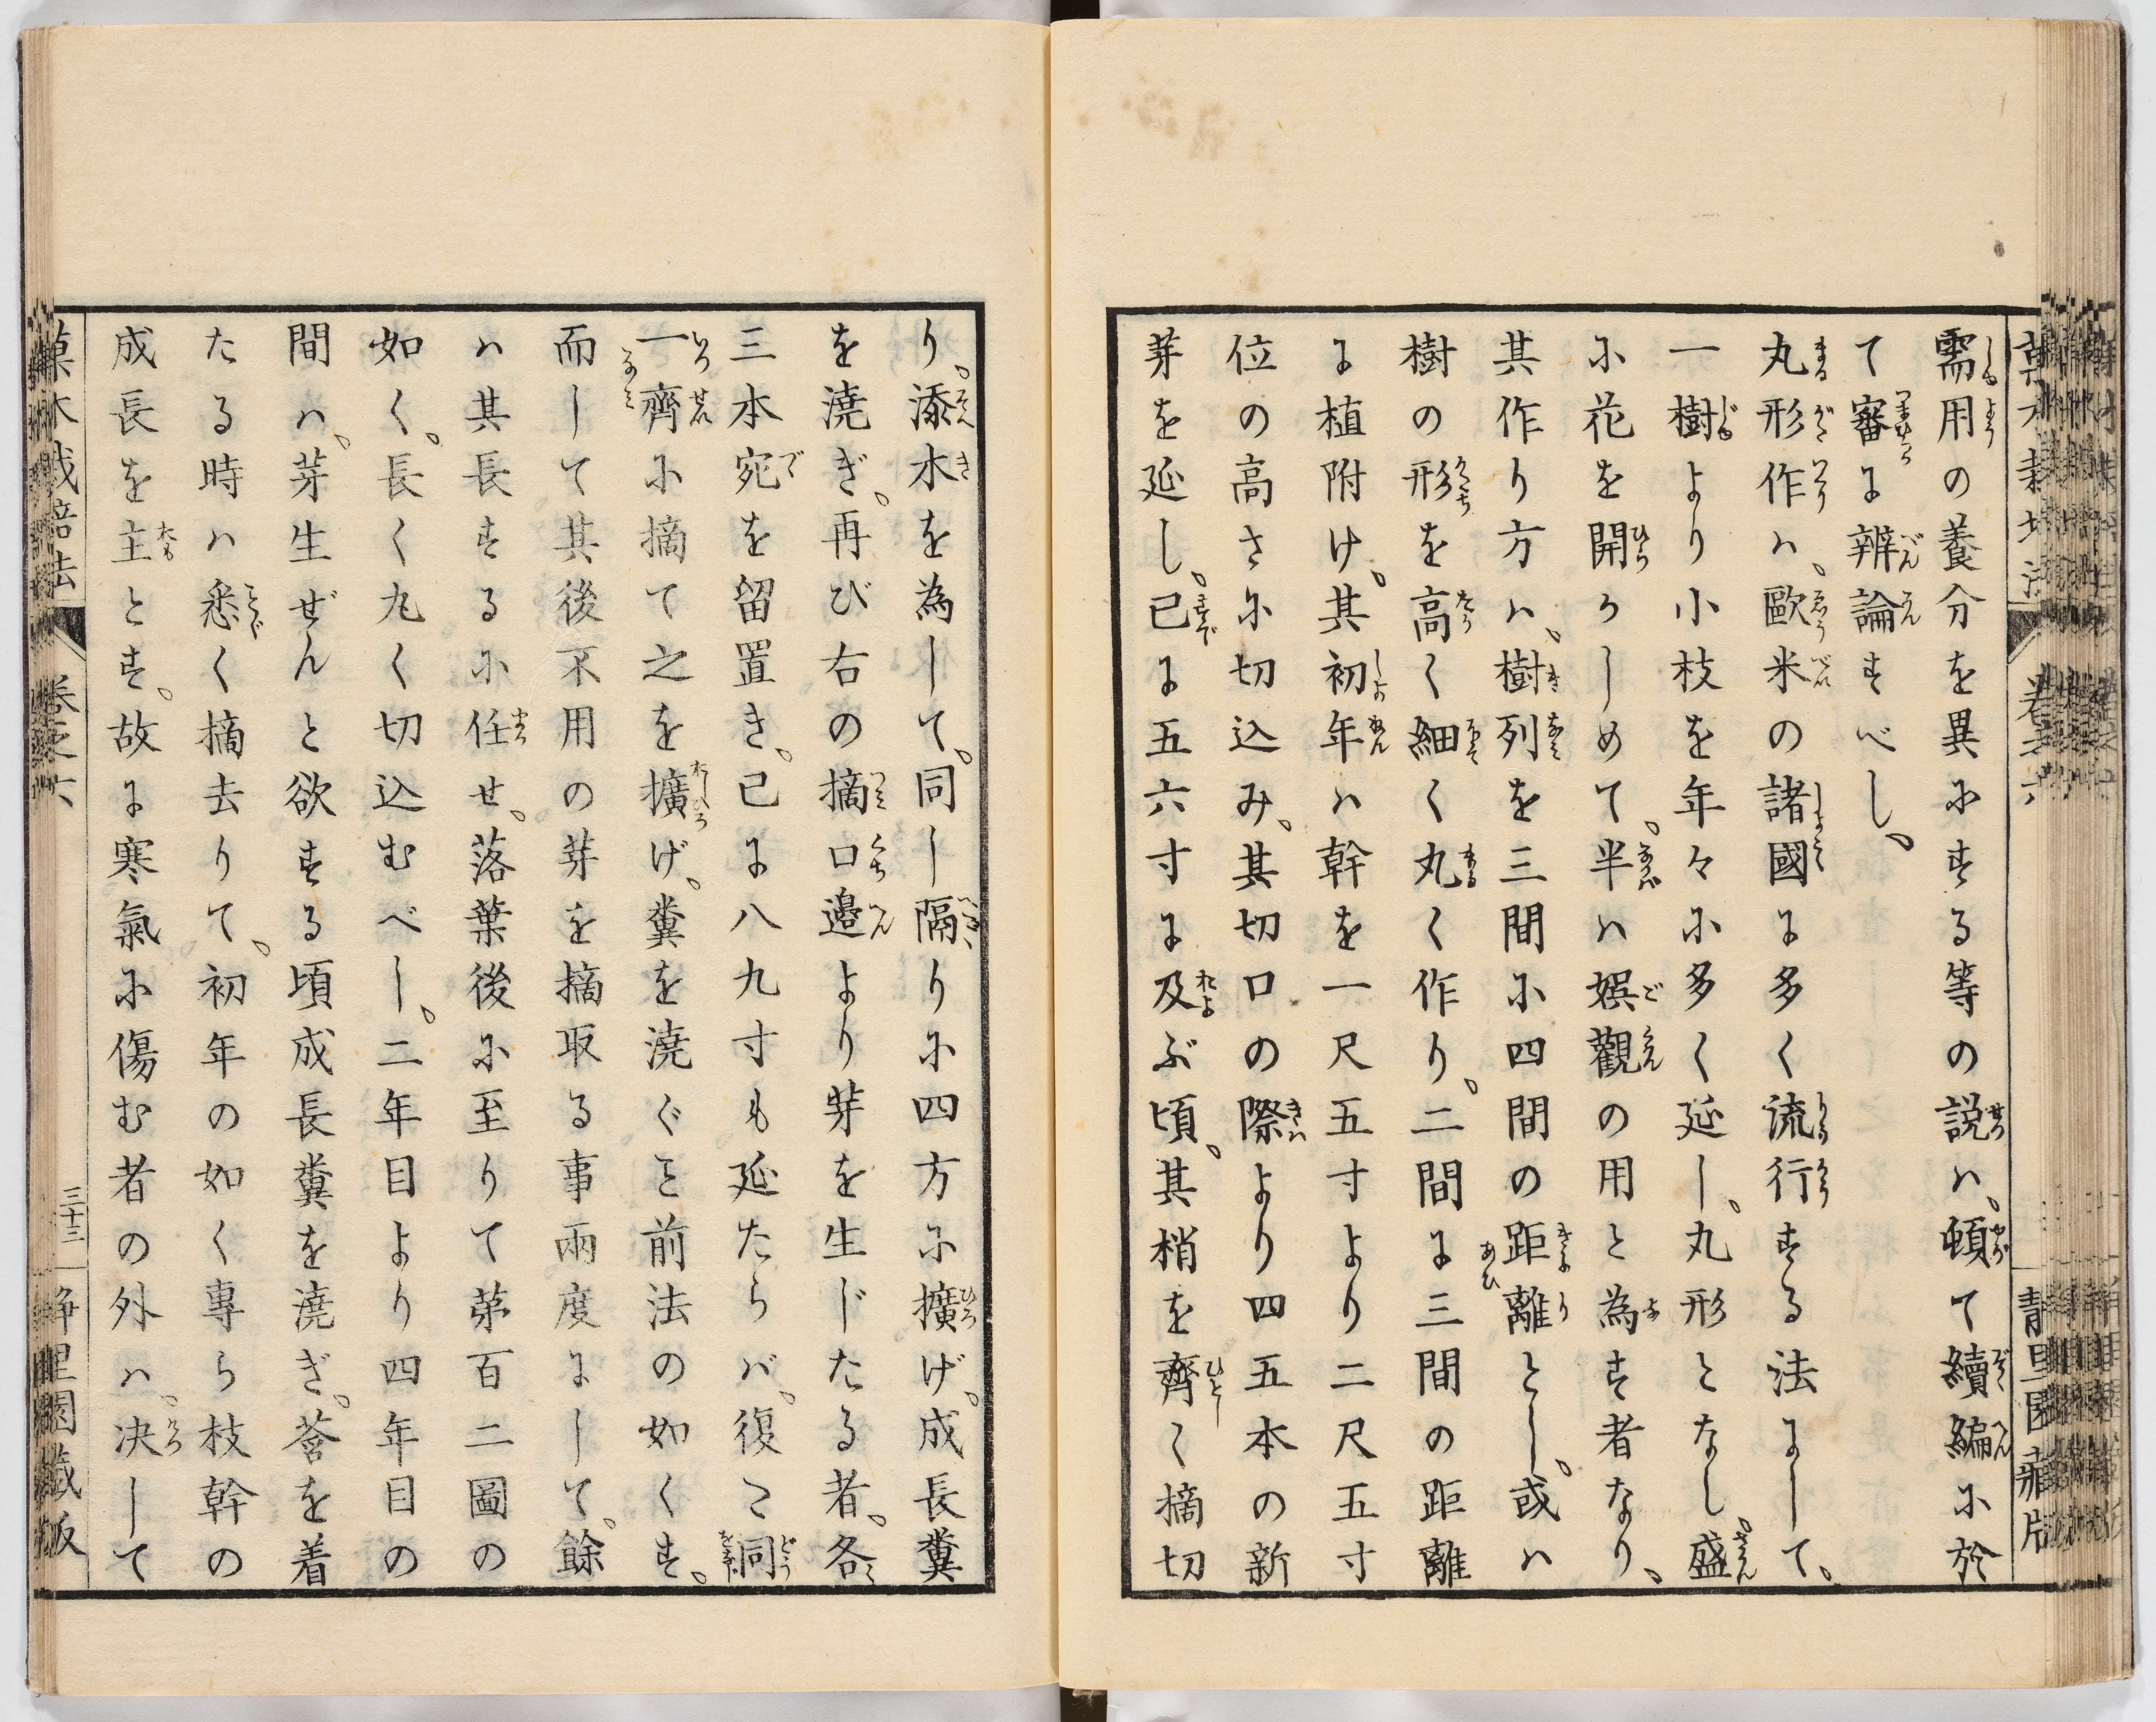 需用の養分を異にする等の説ハ、頓て續編に於
て審に辨論すべし、
丸形作ハ、歐米の諸國に多く流行する法にして、
一樹より小枝を年々に多く延し、丸形となし、盛
に花を開かしめて、半ハ娯觀の用と為す者なり、
其作り方ハ、樹列を三間に四間の距離とし、或ハ
樹の形を高く細く丸く作り、二間に三間の距離
に植附け、其初年ハ幹を一尺五寸より二尺五寸
位の高さに切込み、其切口の際より四五本の新
芽を延し、已に五六寸に及ぶ頃、其梢を齊く摘切
り、添木を為して、同し隔りに四方に擴げ、成長糞
を澆ぎ、再び右の摘口邉より芽を生じたる者、各
三本宛を留置き、已に八九寸も延たらバ、復こ同
一齊に摘て之を擴げ、糞を澆ぐこと前法の如くす、
而して其後不用の芽を摘取る事兩度にして、餘
ハ其長するに任せ、落葉後に至りて第百二圖の
如く、長く丸く切込むべし、二年目より四年目の
間ハ、芽生ぜんと欲する頃成長糞を澆ぎ、莟を着
たる時ハ悉く摘去りて、初年の如く專ら枝幹の
成長を主とす、故に寒氣に傷む者の外ハ、决して
菓木栽培法 卷之六 三十三 静里園藏版